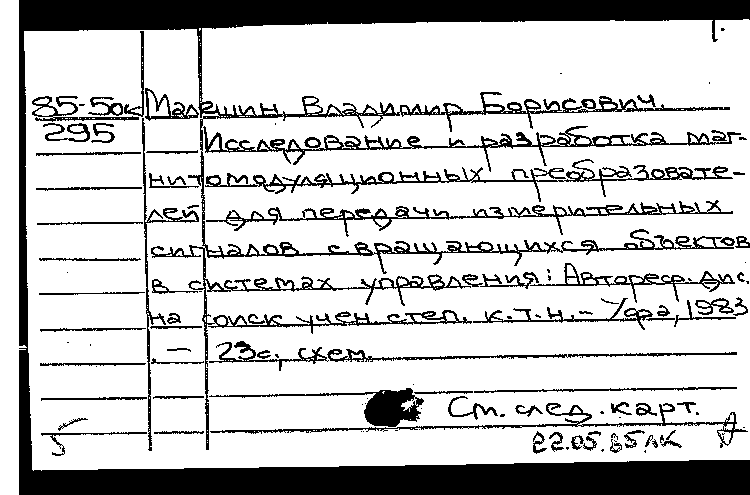 1.
85-50к Малешин, Владимир Борисович.
295 Исследование и разработка маг-
нитомодуляционных преобразовате-
лей для передачи измерительных
сигналов с вращающихся объектов
в системах управления: Автореф. дис.
на соиск учен. степ. к.т.н. - Уфа, 1983
. - 23с., схем.
См. след. карт.
5 22.05.85 ЛК